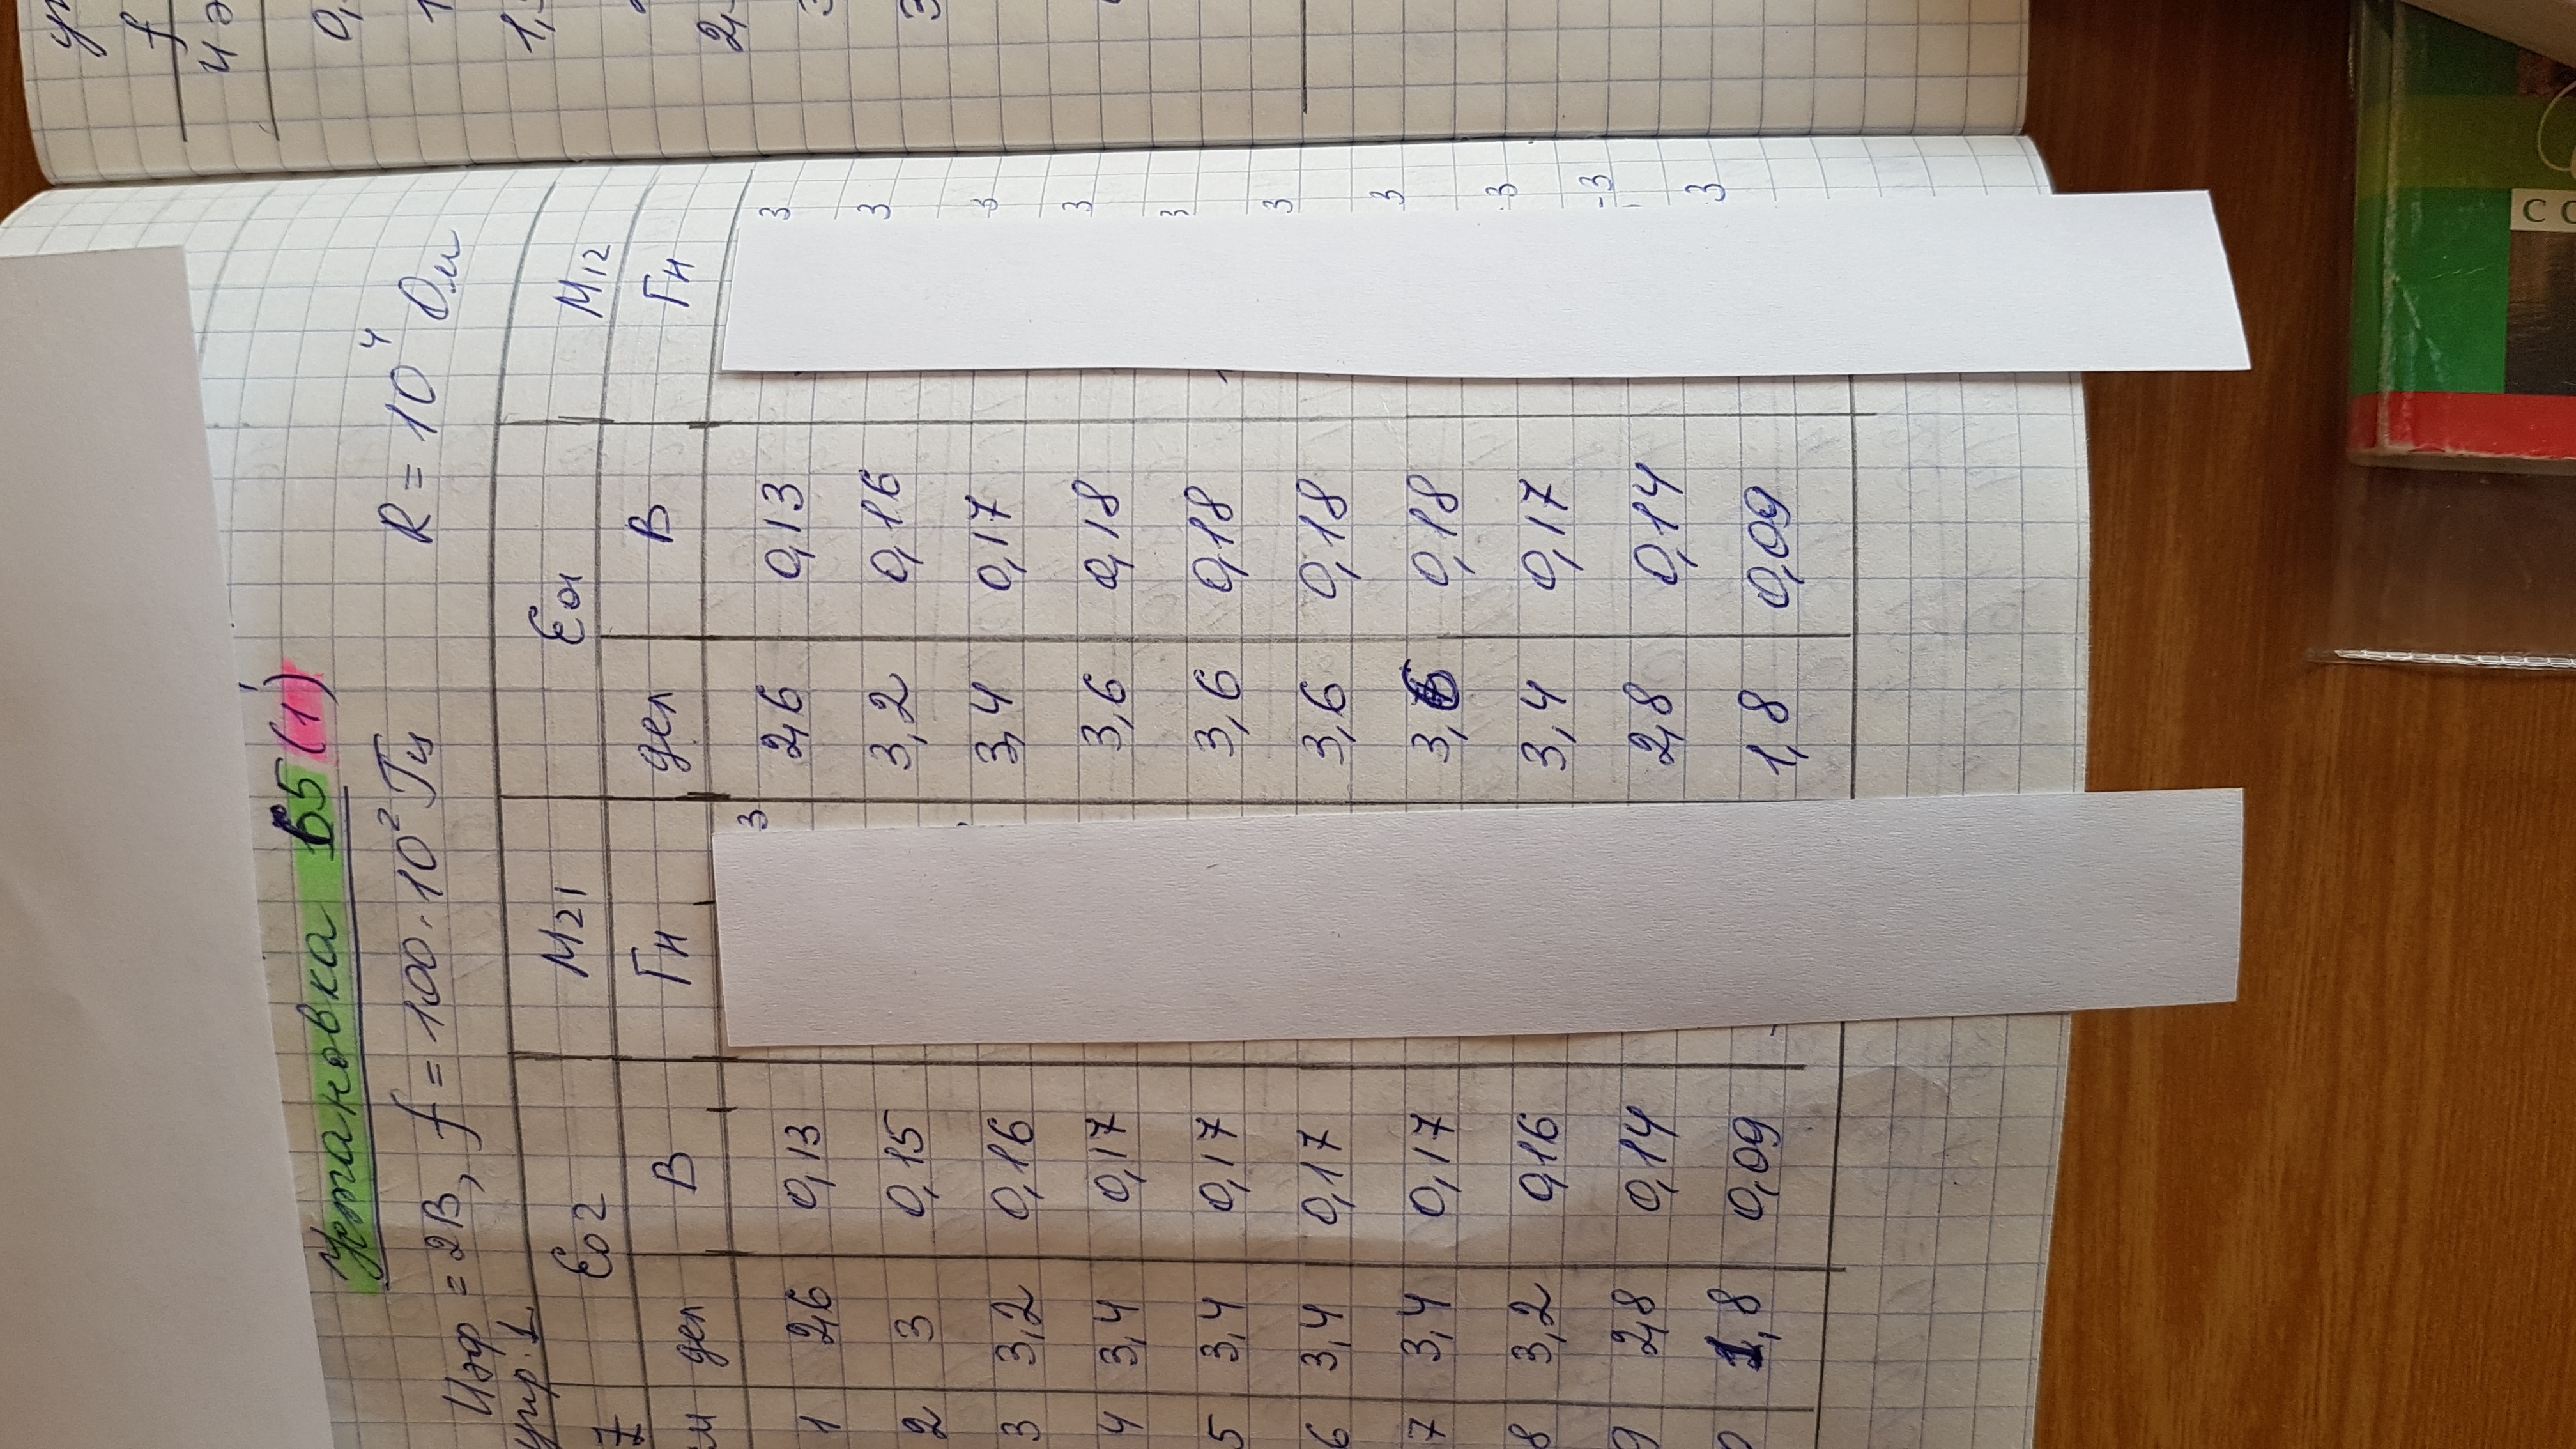 Установка 65 (1)
Uэф = 2В, f = 100·10² Гц R = 10⁴ Ом
упр. 1
Z Ɛ02 M21 Ɛ01 M12
м дел В Гн дел В Гн
1 2,6 0,13 3 2,6 0,13 3
2 3 0,15 3,2 0,16 3
3 3,2 0,16 3,4 0,17 3
4 3,4 0,17 3,6 0,18 3
5 3,4 0,17 3,6 0,18 3
6 3,4 0,17 3,6 0,18 3
7 3,4 0,17 3,6 0,18 3
8 3,2 0,16 3,4 0,17 3
9 2,8 0,14 2,8 0,14 -3
0 1,8 0,09 1,8 0,09 3
f
0,
1
1,
2,
3
3